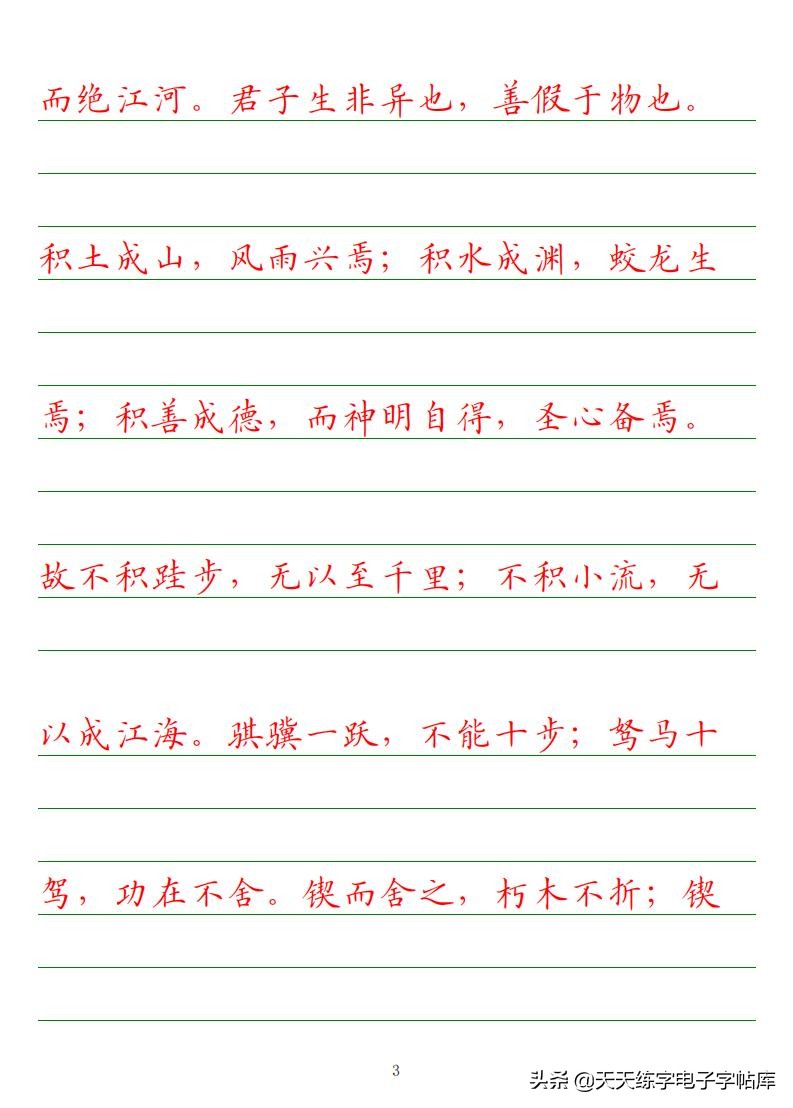 而绝江河。君子生非异也，善假于物也。
积土成山，风雨兴焉；积水成渊，蛟龙生
焉；积善成德，而神明自得，圣心备焉。
故不积跬步，无以至千里；不积小流，无
以成江海。骐骥一跃，不能十步；驽马十
驾，功在不舍。锲而舍之，朽木不折；锲
3
头条 @天天练字电子字帖库